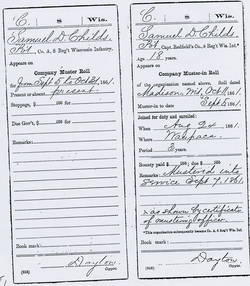 C. 8 Wis.
Samuel D. Childs
Pvt., Co. A, 8 Reg't Wisconsin Infantry.
Appears on
Company Muster Roll
for from Sept 6 to Oct 31, 1861.
Present or absent present
Stoppage, $ 100 for
Due Gov't, $ 100 for
Remarks:
Book mark:
Daylow
Copyist.
C. 8 Wis.
Samuel D Childs
Pvt, Capt. Redfield's Co., 8 Reg't Wis. Inf.*
Age 18 years.
Appears on
Company Muster-in Roll
of the organization named above. Roll dated
Madison, Wis, Oct 1861.
Muster-in to date Sept 6, 1861.
Joined for duty and enrolled:
When Aug 24, 1861.
Where Waupaca
Period 3 years.
Bounty paid $ 100; due $ 100
Remarks: Mustered into
service Sept 7, 1861.
x as shown by certificate
of mustering officer
*This organization subsequently became Co. A, 8 Reg't Wis. Inf.
Book mark:
Daylow
Copyist.